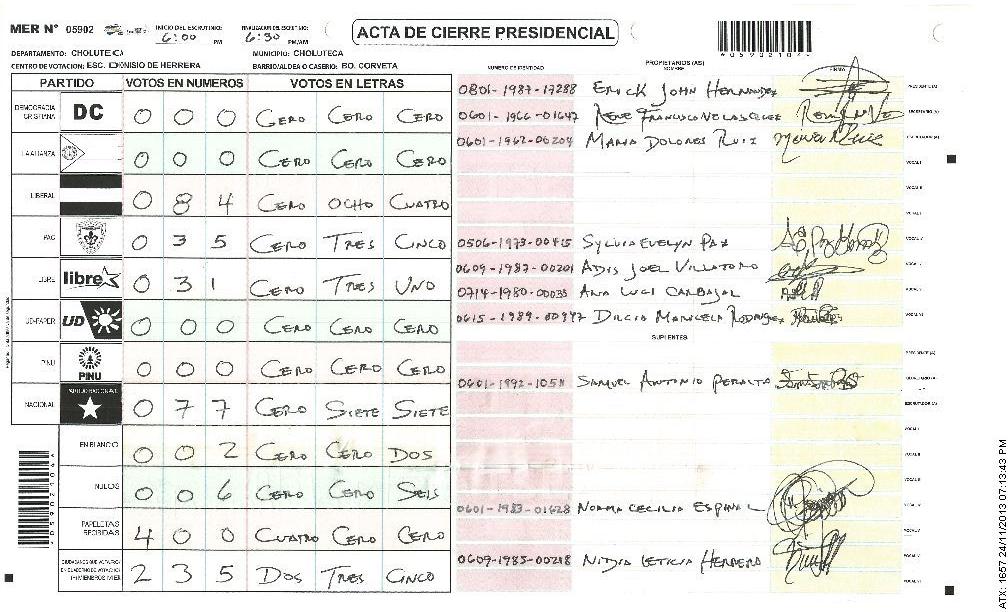 MER Nº 05902 INICIO DEL ESCRUTINIO: 6:00 PM FINALIZACION DEL ESCRUTINIO: 6:30 PM/AM
ACTA DE CIERRE PRESIDENCIAL
DEPARTAMENTO: CHOLUTECA MUNICIPIO: CHOLUTECA
CENTRO DE VOTACION: ESC. DIONISIO DE HERRERA BARRIO/ALDEA O CASERIO: BO. CORVETA
PARTIDO VOTOS EN NUMEROS VOTOS EN LETRAS
DEMOCRACIA CRISTIANA DC 0 0 0 CERO CERO CERO
LA ALIANZA 0 0 0 CERO CERO CERO
LIBERAL 0 8 4 CERO OCHO CUATRO
PAC 0 3 5 CERO TRES CINCO
LIBRE libre 0 3 1 CERO TRES UNO
UD-FAPER UD 0 0 0 CERO CERO CERO
PINU PINU 0 0 0 CERO CERO CERO
NACIONAL PARTIDO NACIONAL 0 7 7 CERO SIETE SIETE
EN BLANCO 0 0 2 CERO CERO DOS
NULOS 0 0 6 CERO CERO SEIS
PAPELETAS RECIBIDAS 4 0 0 CUATRO CERO CERO
2 3 5 DOS TRES CINCO
NUMERO DE IDENTIDAD PROPIETARIOS (AS) NOMBRE FIRMA
0801-1987-17288 ERICK JOHN HERNANDEZ PRESIDENTE (A)
0601-1966-01647 RENE FRANCISCO VELASQUEZ SECRETARIO (A)
0601-1962-00204 MARIA DOLORES RUIZ ESCRUTADOR (A)
VOCAL I
VOCAL II
0506-1973-00415 SYLVIA EVELYN PAZ
0609-1987-00201 ADIS JOEL VILLATORO
0714-1980-00035 ANA LUCI CARBAJAL
0615-1989-00947 DILCIA MARICELA RODRIGUEZ
SUPLENTES
PRESIDENTE (A)
0601-1992-10511 SAMUEL ANTONIO PERALTA SECRETARIO (A)
ESCRUTADOR (A)
VOCAL I
VOCAL II
0601-1983-01628 NORMA CECILIA ESPINAL
0609-1985-00218 NITZIA LETICIA HERRERA
*059021044*
ATX: 1657 24/11/2013 07:13:43 PM